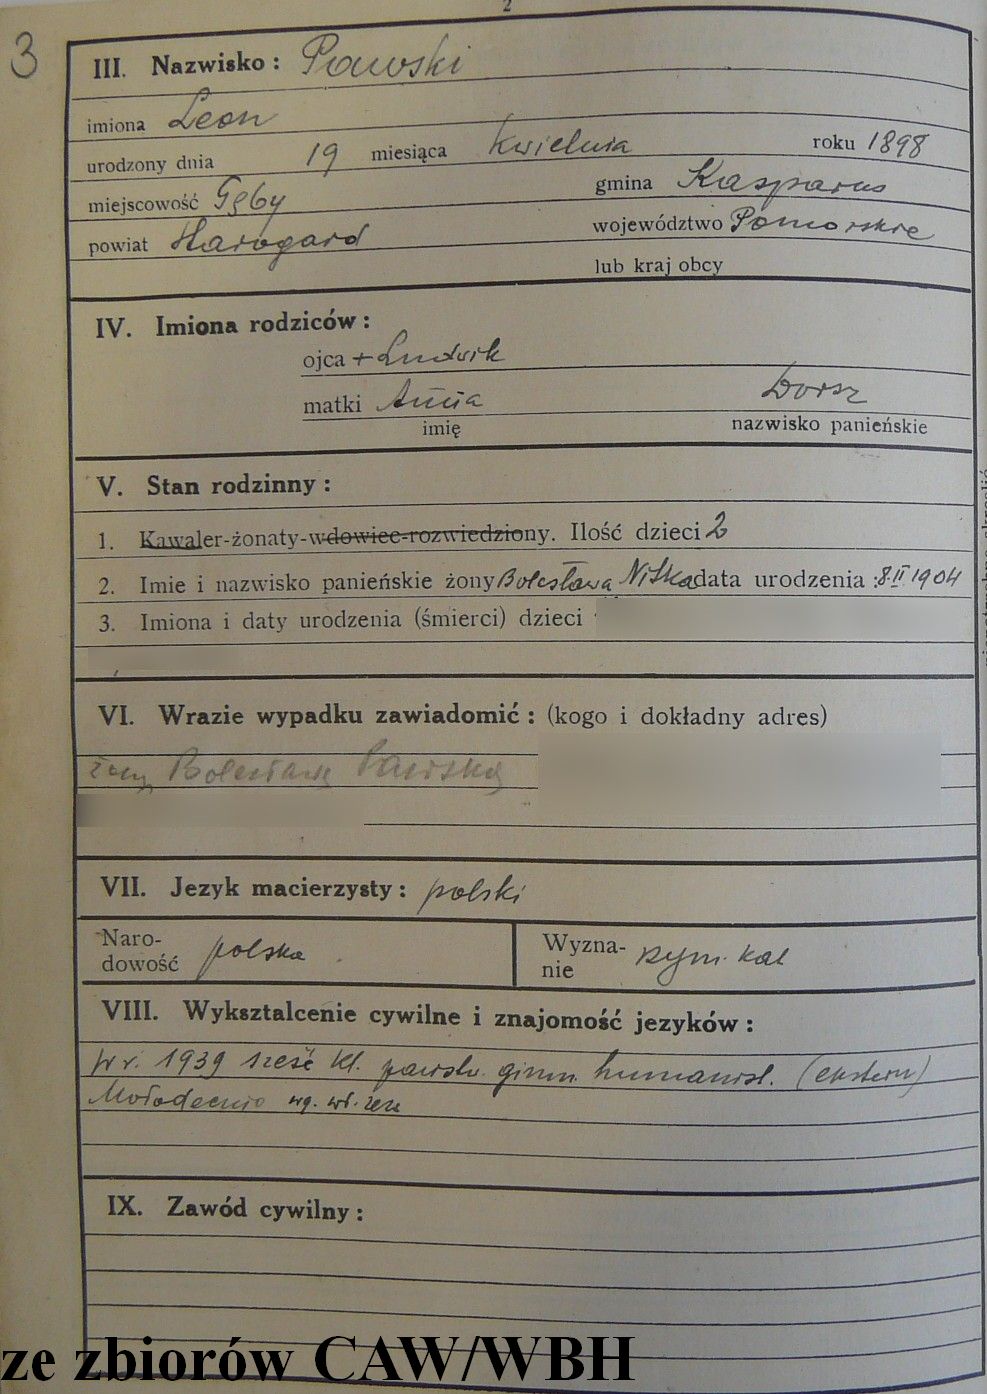 2
3
III. Nazwisko: Pawski
imiona Leon
urodzony dnia 19 miesiąca Kwietnia roku 1898
miejscowość Gęby gmina Kasparus
powiat Starogard województwo Pomorskie
lub kraj obcy
IV. Imiona rodziców:
ojca + Ludwik
matki Anna Dorsz
imię nazwisko panieńskie
V. Stan rodzinny:
1. Kawaler-żonaty-wdowiec-rozwiedziony. Ilość dzieci 2
2. Imie i nazwisko panieńskie żony Bolesława Nitka data urodzenia: 8.II 1904
3. Imiona i daty urodzenia (śmierci) dzieci
VI. Wrazie wypadku zawiadomić: (kogo i dokładny adres)
żonę Bolesławę Pawską
VII. Jezyk macierzysty: polski
Naro-
dowość polska
Wyzna-
nie rzym. kat
VIII. Wykształcenie cywilne i znajomość jezyków:
W r. 1939 sześć kl. państw. gimn. humanist. (ekstern)
Mołodeczno wg. wł. zezn
IX. Zawód cywilny:
ze zbiorów CAW/WBH